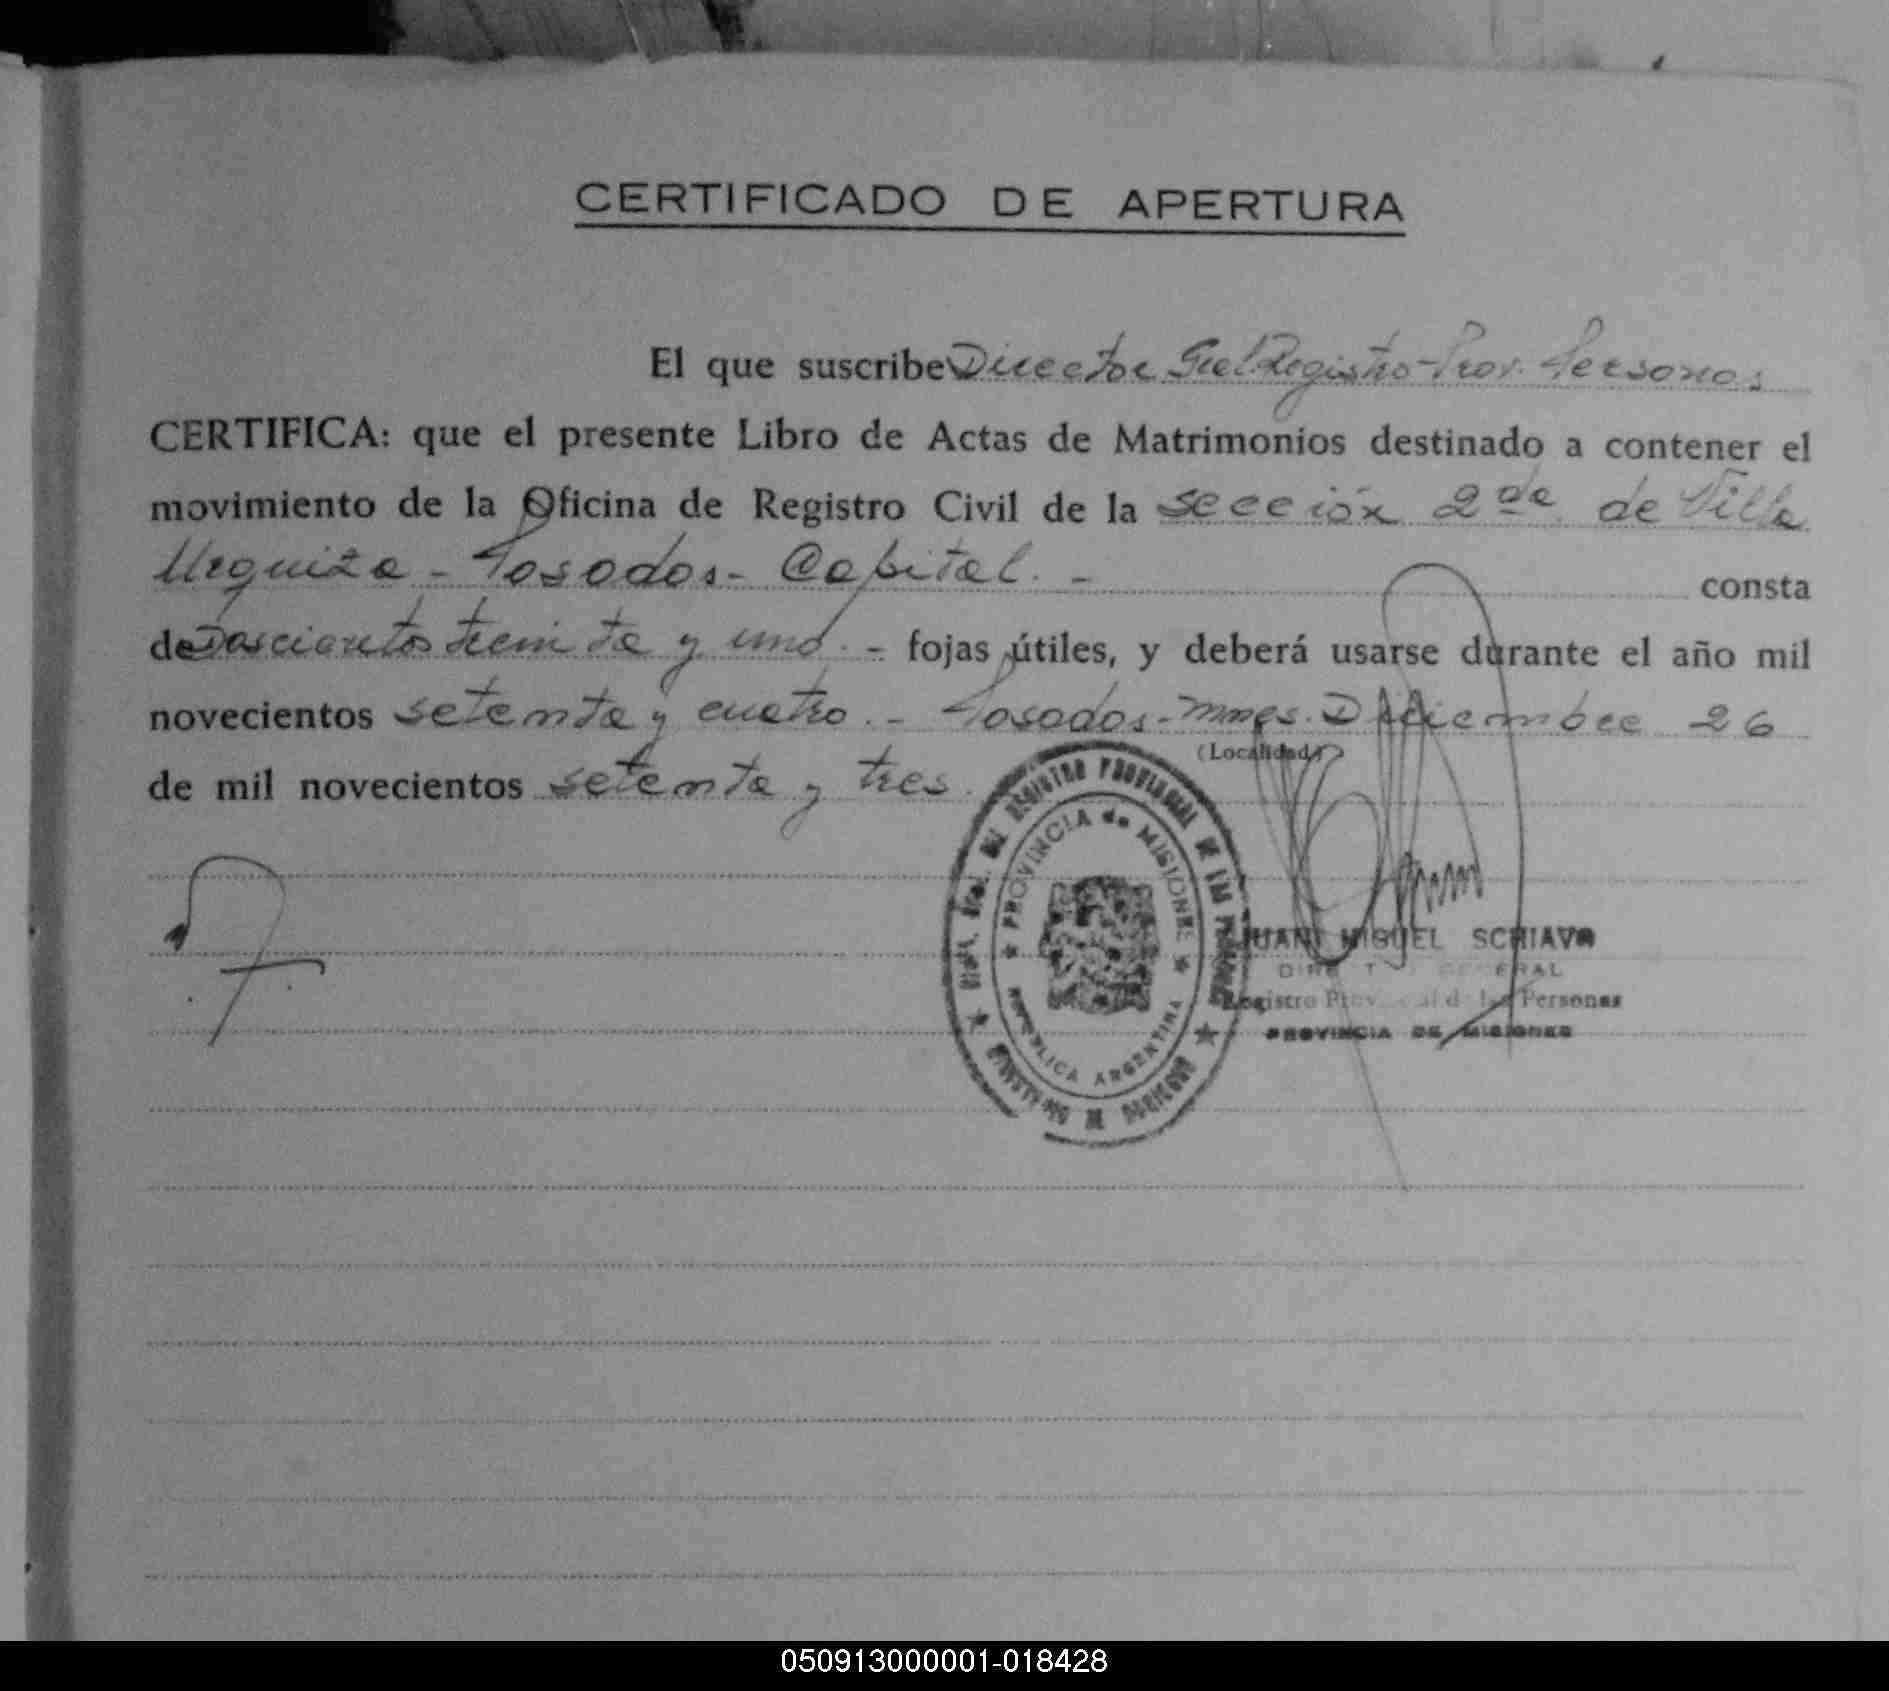 CERTIFICADO DE APERTURA
El que suscribe Director Gral Registro Prov. Personas
CERTIFICA: que el presente Libro de Actas de Matrimonios destinado a contener el
movimiento de la Oficina de Registro Civil de la sección 2da de Villa
Urquiza - Posadas - Capital. - consta
de Doscientos treinta y uno. - fojas útiles, y deberá usarse durante el año mil
novecientos setenta y cuatro. - Posadas - Mnes. Diciembre 26
(Localidad)
de mil novecientos setenta y tres.
REGISTRO PROVINCIAL DE LAS PERSONAS
PROVINCIA de MISIONES
REPUBLICA ARGENTINA
JUAN MIGUEL SCHIAVO
DIRECTOR GENERAL
Registro Provincial de las Personas
PROVINCIA DE MISIONES
050913000001-018428